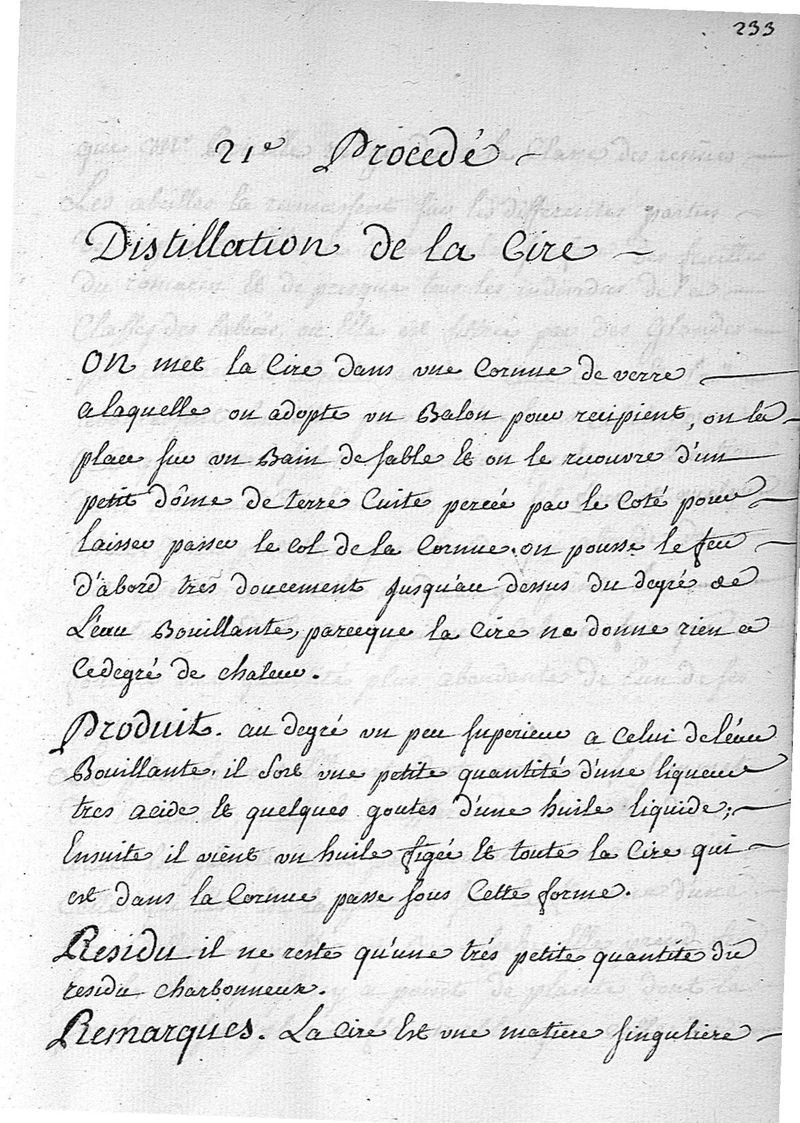 233
21e Procedé
Distillation de la Cire
on met la Cire dans une Cornue de verre
a laquelle on adopte un Balon pour recipient, on la
place sur un Bain de sable Et on le recouvre d'un
petit dôme de terre Cuite percée par le Coté pour
laisser passer le Col de la Cornue. on pousse le feu
d'abord tres doucement jusqu'au dessus du degré de
L'eau Bouillante, parceque la Cire ne donne rien a
Cedegré de chaleur.
Produit. au degré un peu superieur a Celui de l'éau
Bouillante, il sort une petite quantité d'une liqueur
tres acide Et quelques goutes d'une huile liquide;
Ensuite il vient un huile figée Et toute la Cire qui
est dans la Cornue passe sous Cette forme.
Residu il ne reste qu'une trés petite quantité du
residu charbonneux.
Remarques. La Cire Est une matiere singuliere